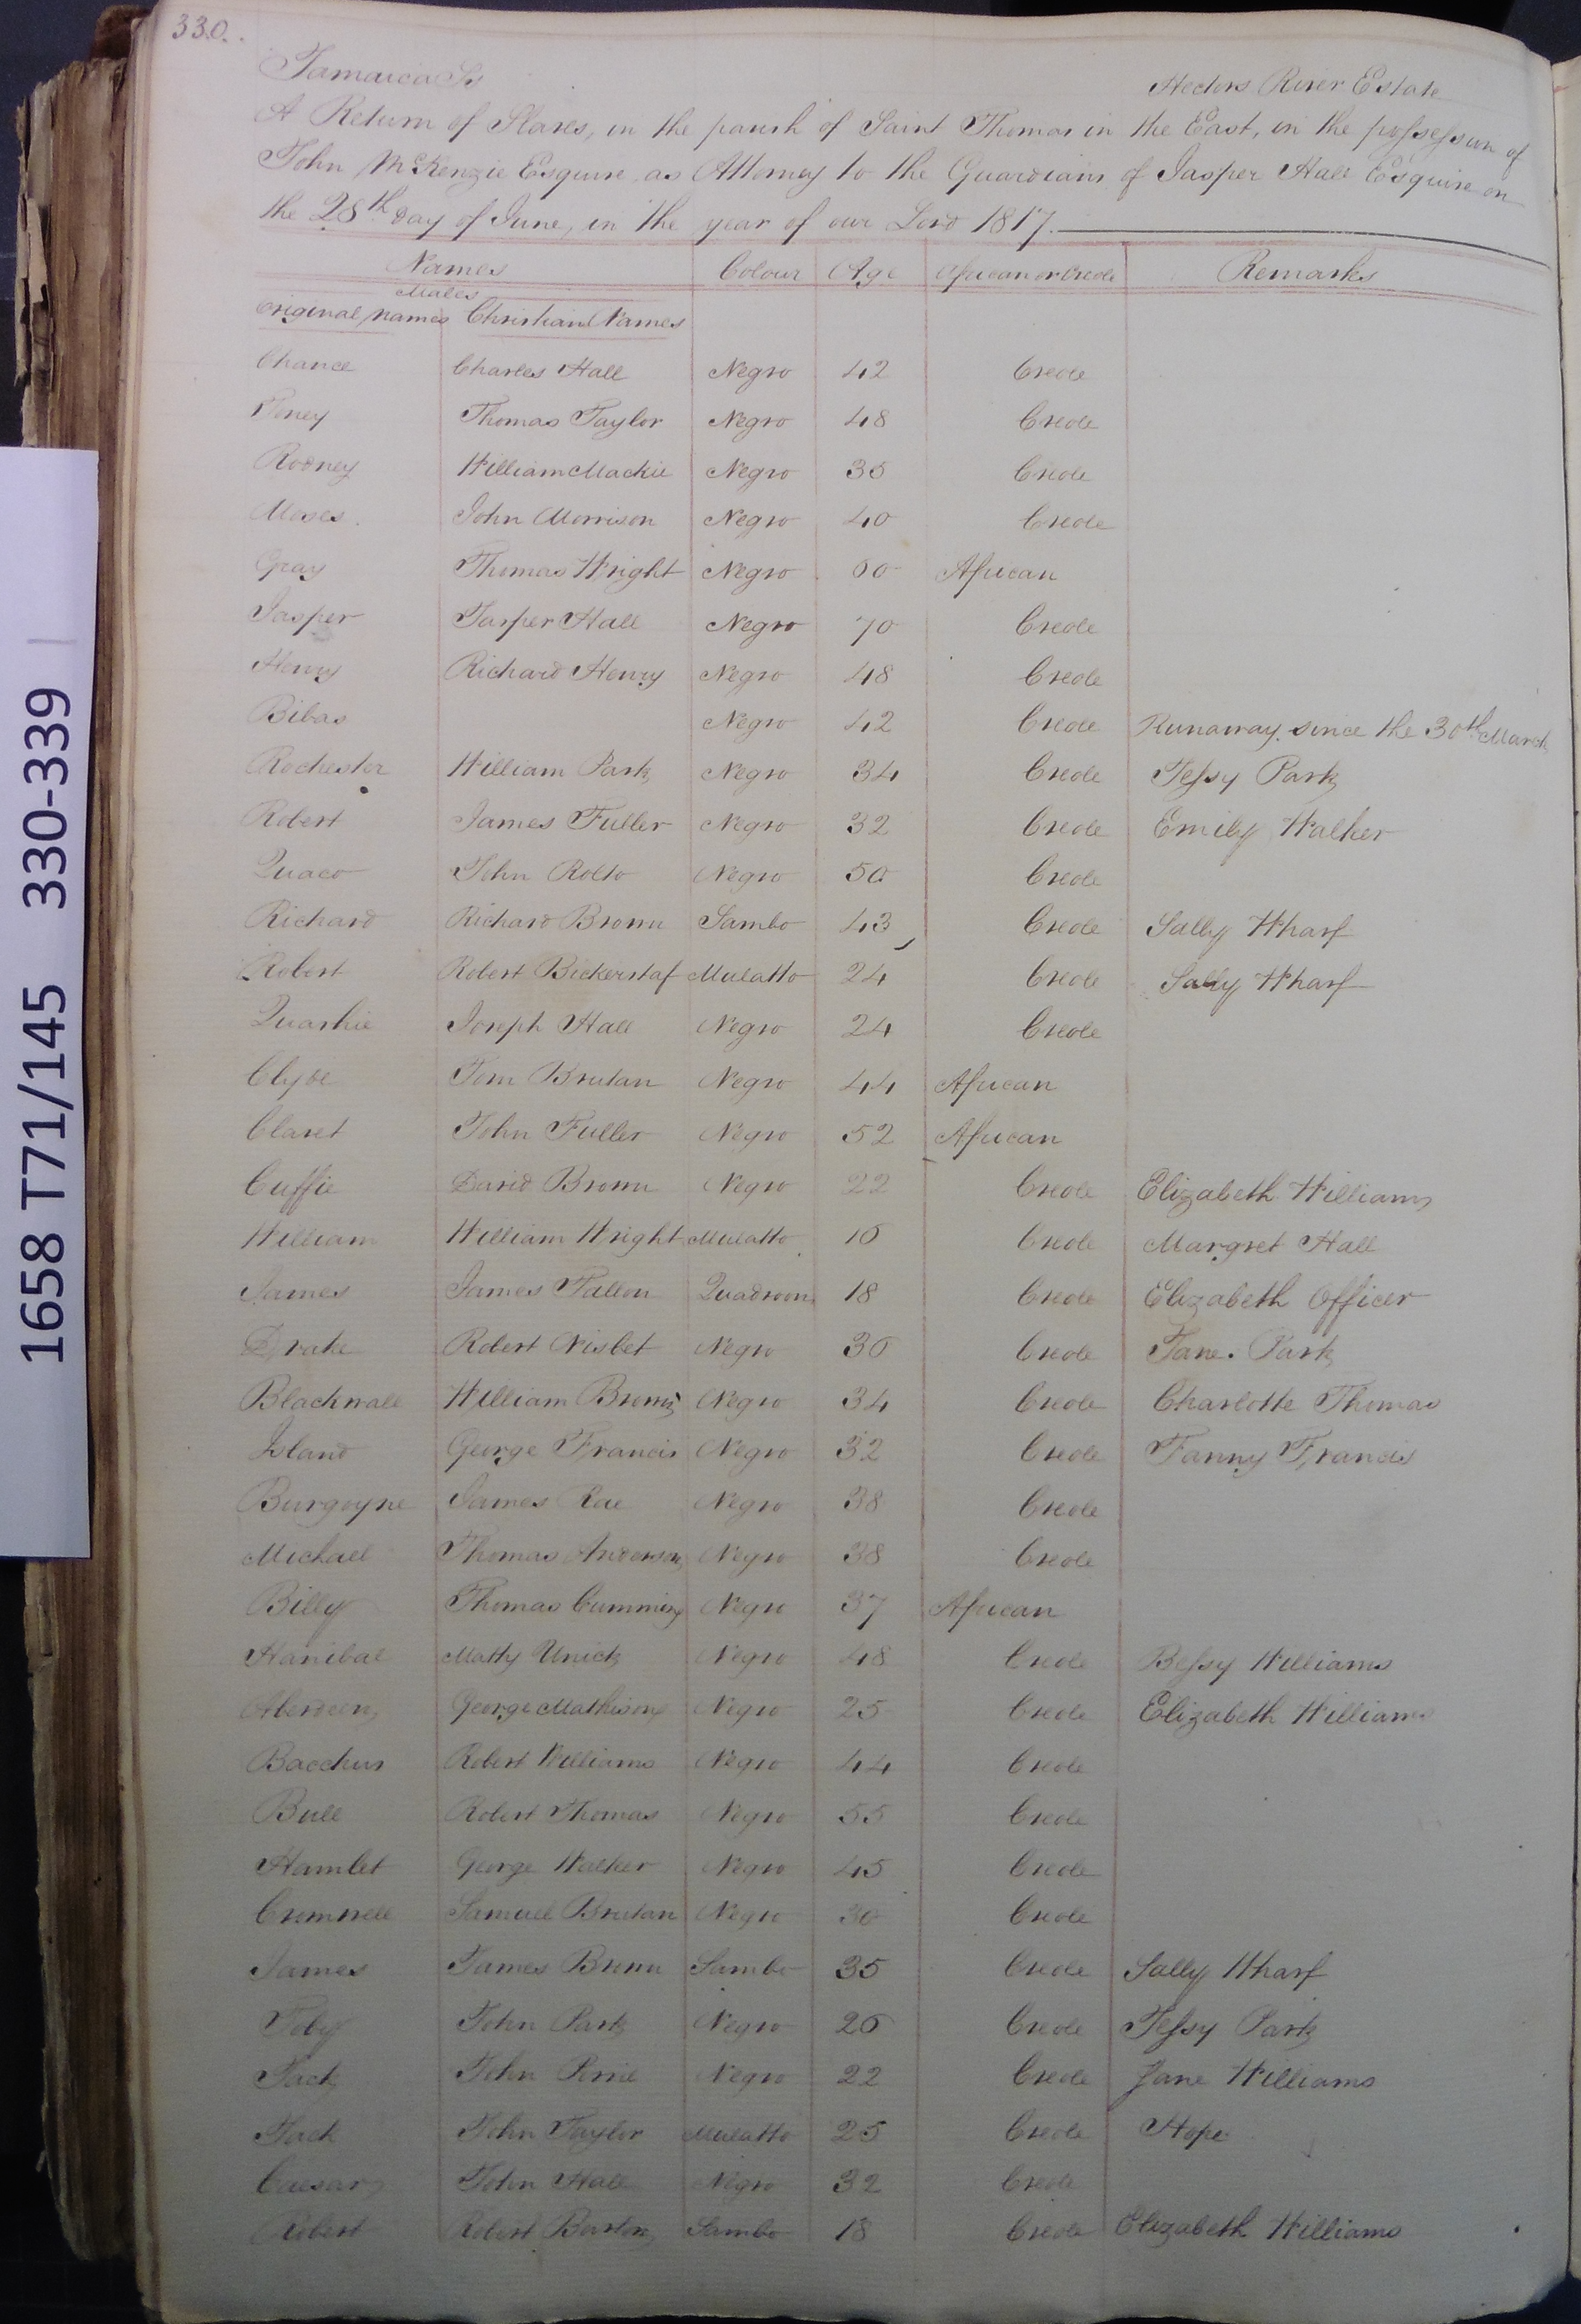 330.
Jamaica Ss
Hectors River Estate
A Return of Slaves, in the parish of Saint Thomas in the East, in the possession of
John McKenzie Esquire, as Attorney to the Guardians of Jasper Hall Esquire on
the 28th day of June, in the year of our Lord 1817.
Names Colour Age African or Creole Remarks
Males
Original Names Christian Names
Chance Charles Hall Negro 42 Creole
Toney Thomas Taylor Negro 48 Creole
Rodney William Mackie Negro 35 Creole
Moses. John Morrison Negro 40 Creole
Gray Thomas Wright Negro 60 African
Jasper Jasper Hall Negro 70 Creole
Henry Richard Henry Negro 48 Creole
Bibas Negro 42 Creole Runaway since the 30th March
Rochester William Park Negro 34 Creole Jessy Park
Robert James Fuller Negro 32 Creole Emily Walker
Quaco John Rolto Negro 50 Creole
Richard Richard Brown Sambo 43 Creole Sally Wharf
Robert Robert Bickerstaf Mulatto 24 Creole Sally Wharf
Quashie Joseph Hall Negro 24 Creole
Clyde Tom Brutan Negro 44 African
Claret John Fuller Negro 52 African
Cuffie David Brown Negro 22 Creole Elizabeth Williams
William William Wright Mulatto 16 Creole Margret Hall
James James Fallon Quadroon 18 Creole Elizabeth Officer
Drake Robert Nisbet Negro 36 Creole Jane. Park
Blackwall William Brown Negro 34 Creole Charlotte Thomas
Island George Francis Negro 32 Creole Fanny Francis
Burgoyne James Rae Negro 38 Creole
Michael Thomas Anderson Negro 38 Creole
Billy Thomas Cumming Negro 37 African
Hanibal Matty Unick Negro 48 Creole Bessy Williams
Aberdeen George Mathison Negro 25 Creole Elizabeth Williams
Bacchus Robert Williams Negro 44 Creole
Bull Robert Thomas Negro 55 Creole
Hamlet George Walker Negro 45 Creole
Cromwell Samuel Brutan Negro 30 Creole
James James Brown Sambo 35 Creole Sally Wharf
Toby John Park Negro 26 Creole Jessy Park
Jack John Pirrie Negro 22 Creole Jane Williams
Jack John Taylor Mulatto 25 Creole Hope
Caesar John Hall Negro 32 Creole
Robert Robert Barton Sambo 18 Creole Elizabeth Williams
1658 T71/145 330-339